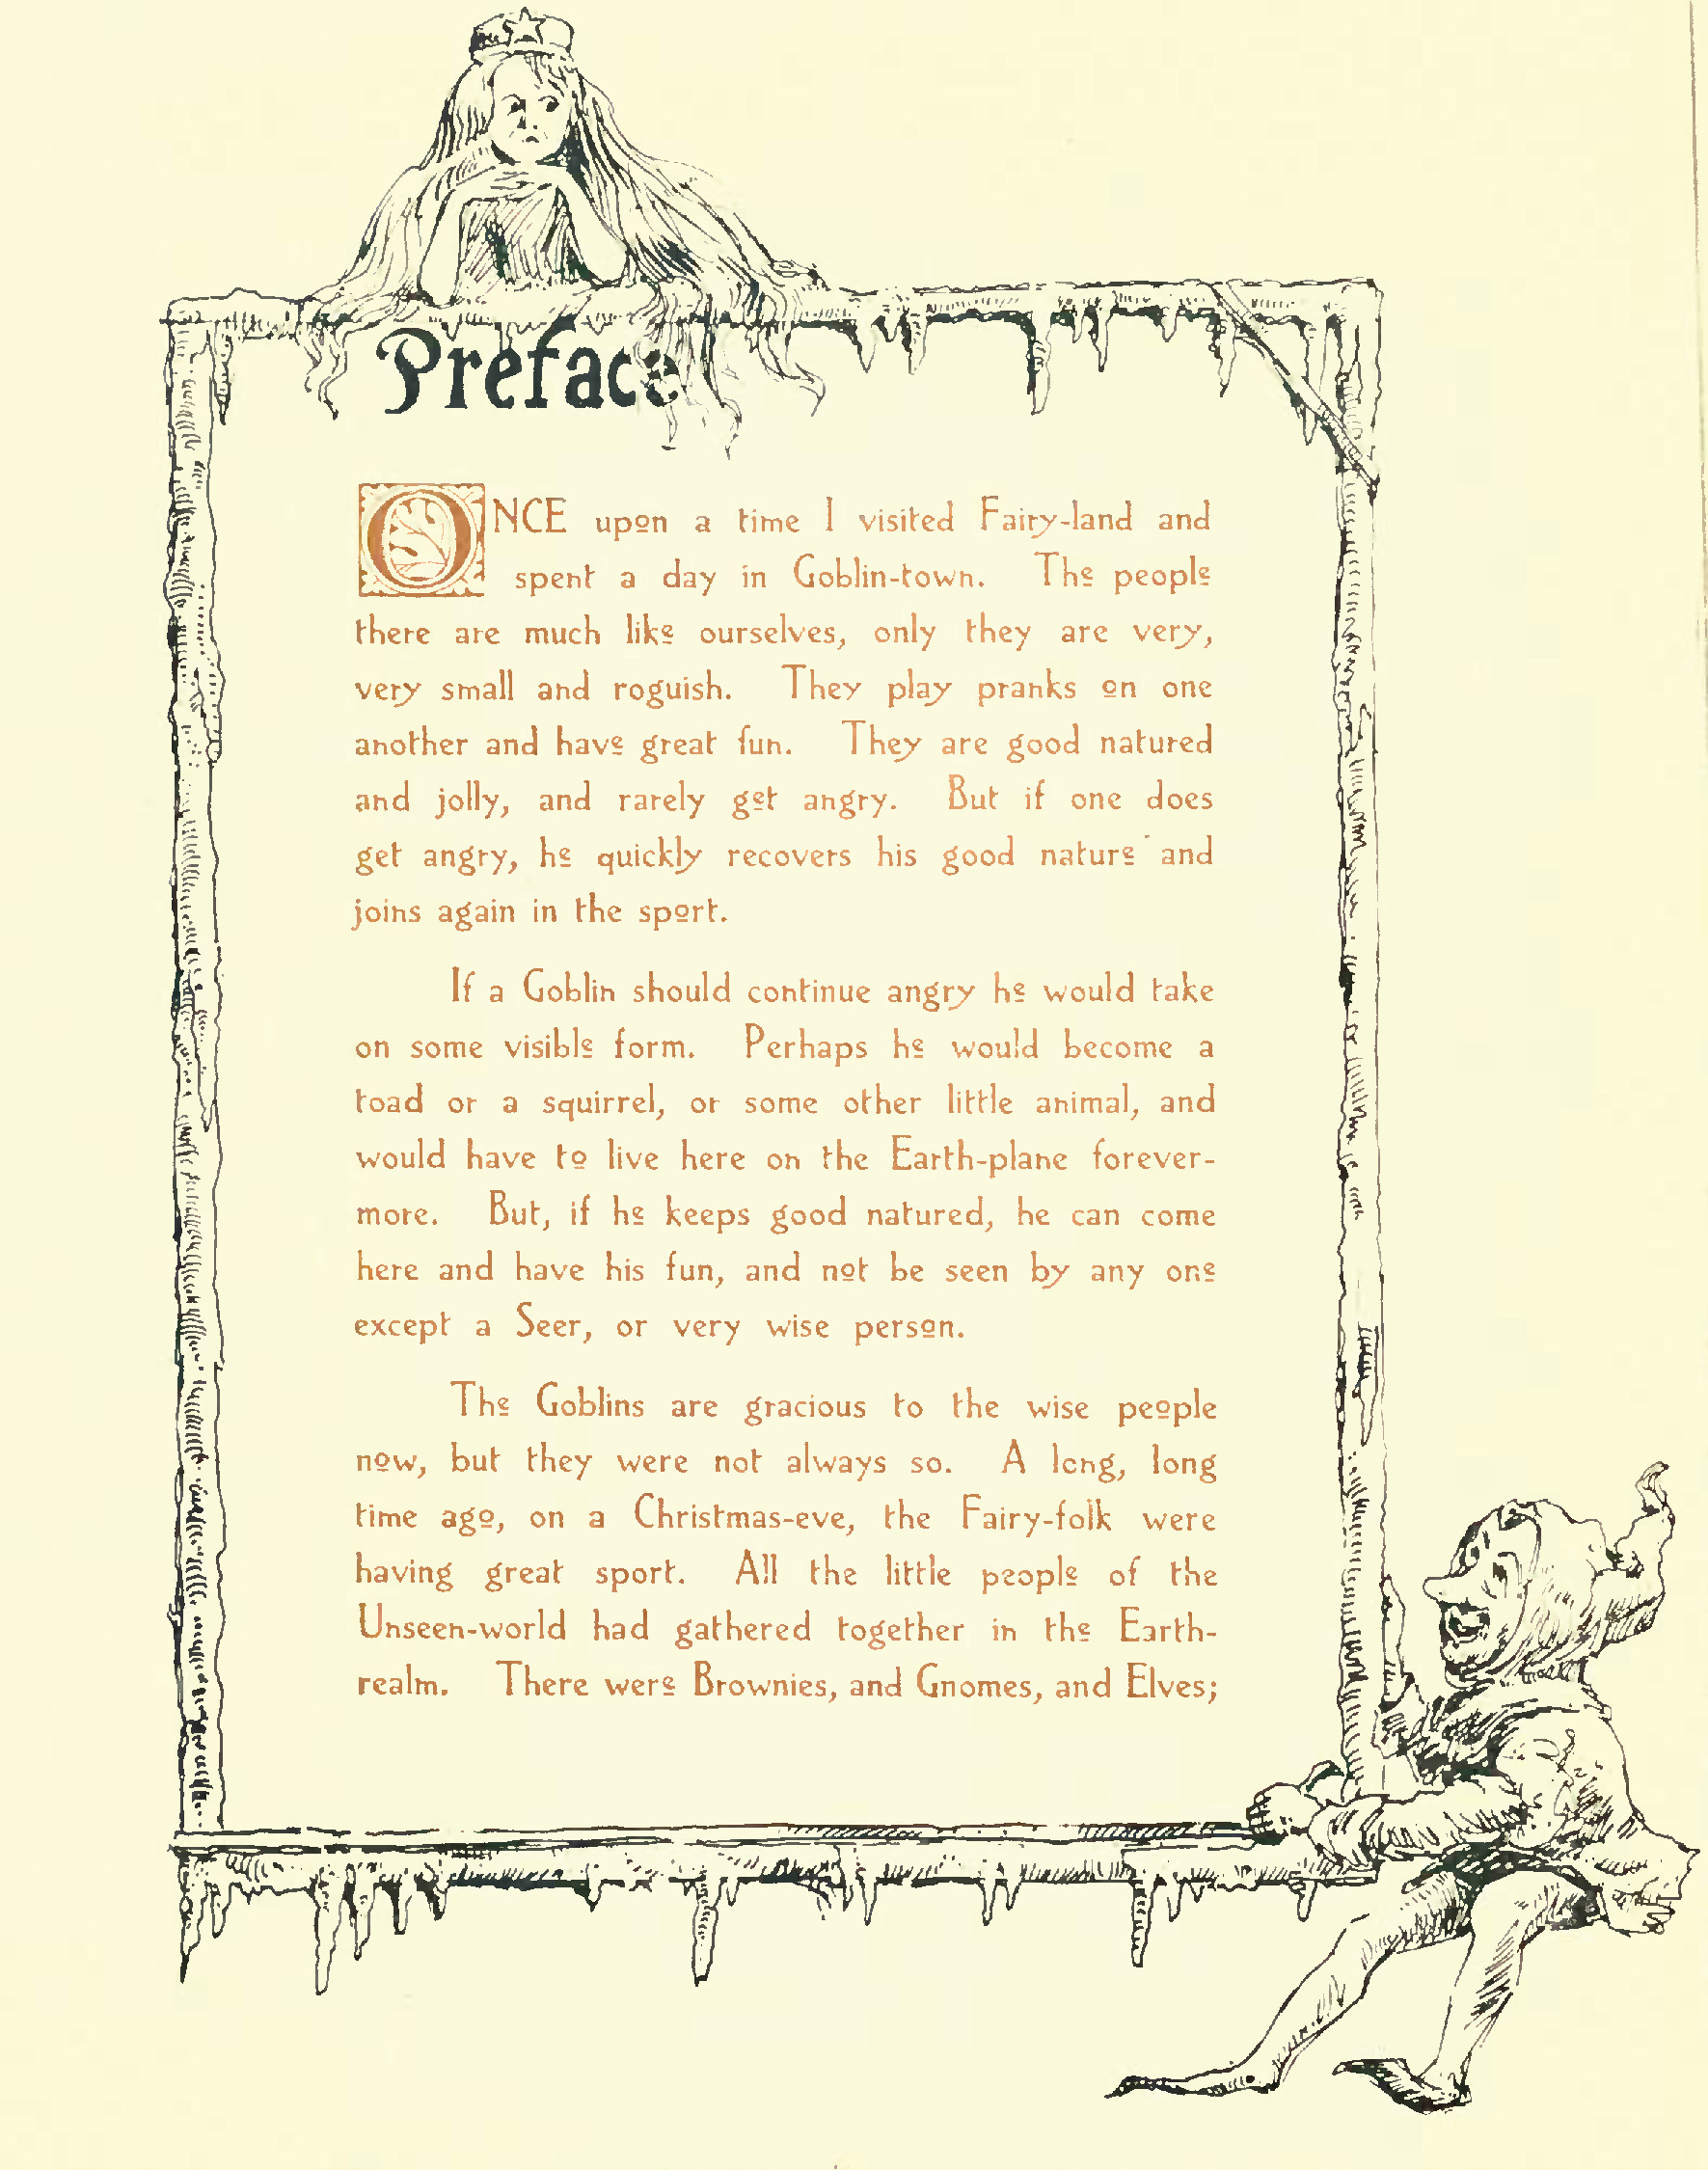 Preface
ONCE upon a time I visited Fairy-land and
spent a day in Goblin-town. The people
there are much like ourselves, only they are very,
very small and roguish. They play pranks on one
another and have great fun. They are good natured
and jolly, and rarely get angry. But if one does
get angry, he quickly recovers his good nature and
joins again in the sport.
If a Goblin should continue angry he would take
on some visible form. Perhaps he would become a
toad or a squirrel, or some other little animal, and
would have to live here on the Earth-plane forever-
more. But, if he keeps good natured, he can come
here and have his fun, and not be seen by any one
except a Seer, or very wise person.
The Goblins are gracious to the wise people
now, but they were not always so. A long, long
time ago, on a Christmas-eve, the Fairy-folk were
having great sport. All the little people of the
Unseen-world had gathered together in the Earth-
realm. There were Brownies, and Gnomes, and Elves;